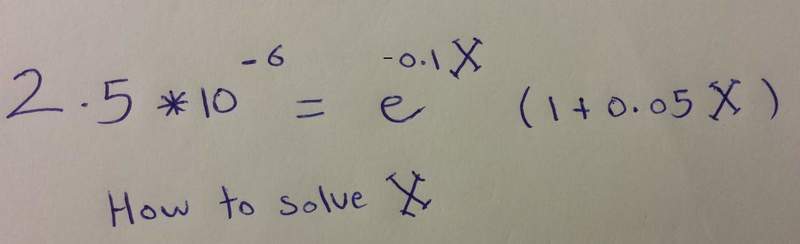 2.5 *10^-6 = e^-0.1X (1+0.05X)
How to solve X